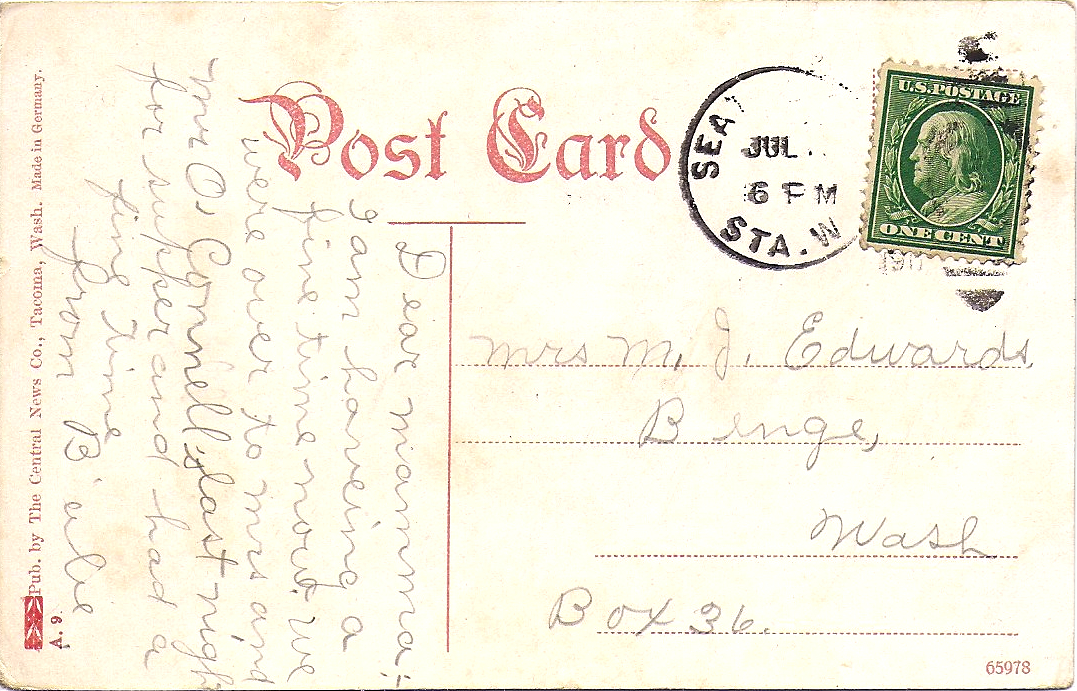 Post Card
SEA
JUL
6 PM
STA. W
U.S. POSTAGE
ONE CENT
190
Dear mamma:-
I am haveing a
fine time now. We
were over to mrs and
mr O' Connell's last nigh
for supper and had a
fine time
from B'ebe
Mrs M. J. Edwards,
Binge,
Wash
Box 36.
Pub. by The Central News Co., Tacoma, Wash. Made in Germany.
A. 9
65978